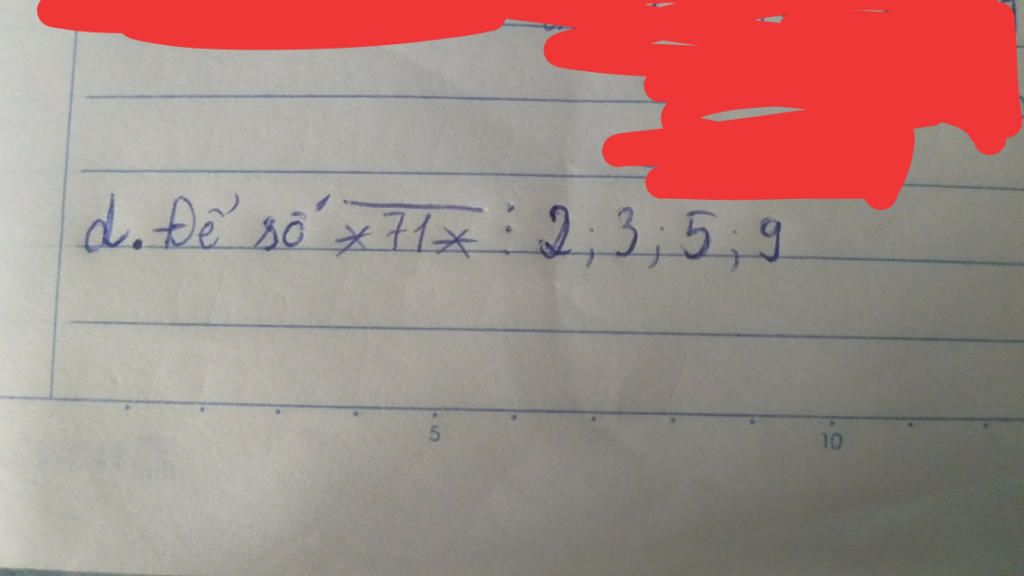 d. Để số *71* ⋮ 2; 3; 5; 9
5 10